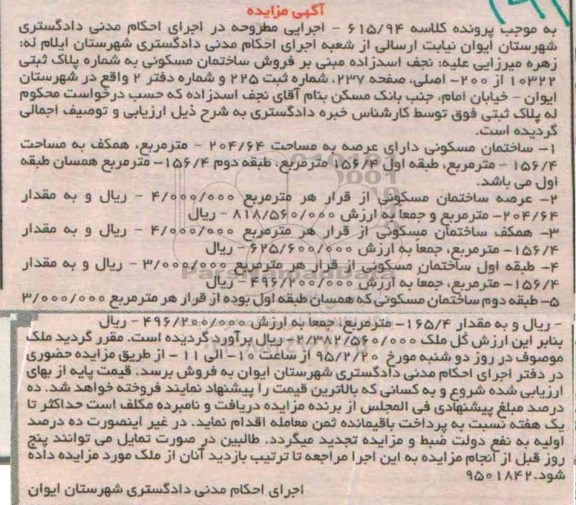 آگهی مزایده
به موجب پرونده کلاسه ۶۱۵/۹۴ - اجرایی مطروحه در اجرای احکام مدنی دادگستری
شهرستان ایوان نیابت ارسالی از شعبه اجرای احکام مدنی دادگستری شهرستان ایلام له:
زهره میرزایی علیه: نجف اسدزاده مبنی بر فروش ساختمان مسکونی به شماره پلاک ثبتی
۱۰۳۲۲ از ۲۰۰- اصلی، صفحه ۲۳۷، شماره ثبت ۲۲۵ و شماره دفتر ۲ واقع در شهرستان
ایوان - خیابان امام، جنب بانک مسکن بنام آقای نجف اسدزاده که حسب درخواست محکوم
له پلاک ثبتی فوق توسط کارشناس خبره دادگستری به شرح ذیل ارزیابی و توصیف اجمالی
گردیده است.
۱- ساختمان مسکونی دارای عرصه به مساحت ۲۰۴/۶۴ - مترمربع، همکف به مساحت
۱۵۶/۴ - مترمربع، طبقه اول ۱۵۶/۴ مترمربع، طبقه دوم ۱۵۶/۴- مترمربع همسان طبقه
اول می باشد.
۲- عرصه ساختمان مسکونی از قرار هر مترمربع ۴/۰۰۰/۰۰۰ - ریال و به مقدار
۲۰۴/۶۴- مترمربع و جمعاً به ارزش ۸۱۸/۵۶۰/۰۰۰ - ریال
۳- همکف ساختمان مسکونی از قرار هر مترمربع ۴/۰۰۰/۰۰۰ - ریال و به مقدار
۱۵۶/۴- مترمربع، جمعاً به ارزش ۶۲۵/۶۰۰/۰۰۰ - ریال
۴- طبقه اول ساختمان مسکونی از قرار هر مترمربع ۳/۰۰۰/۰۰۰ - ریال و به مقدار
۱۵۶/۴- مترمربع، جمعاً به ارزش ۴۹۶/۲۰۰/۰۰۰ - ریال
۵- طبقه دوم ساختمان مسکونی که همسان طبقه اول بوده از قرار هر مترمربع ۳/۰۰۰/۰۰۰
- ریال و به مقدار ۱۶۵/۴- مترمربع، جمعاً به ارزش ۴۹۶/۲۰۰/۰۰۰ - ریال
بنابر این ارزش کل ملک ۲/۳۸۲/۵۶۰/۰۰۰- ریال برآورد گردیده است. مقرر گردید ملک
موصوف در روز دو شنبه مورخ ۹۵/۲/۲۰ از ساعت ۱۰- الی ۱۱ - از طریق مزایده حضوری
در دفتر اجرای احکام مدنی دادگستری شهرستان ایوان به فروش برسد. قیمت پایه از بهای
ارزیابی شده شروع و به کسانی که بالاترین قیمت را پیشنهاد نمایند فروخته خواهد شد. ده
درصد مبلغ پیشنهادی فی المجلس از برنده مزایده دریافت و نامبرده مکلف است حداکثر تا
یک هفته نسبت به پرداخت باقیمانده ثمن معامله اقدام نماید. در غیر اینصورت ده درصد
اولیه به نفع دولت ضبط و مزایده تجدید میگردد. طالبین در صورت تمایل می توانند پنج
روز قبل از انجام مزایده به این اجرا مراجعه تا ترتیب بازدید آنان از ملک مورد مزایده داده
شود.۹۵۰۱۸۴۲
اجرای احکام مدنی دادگستری شهرستان ایوان